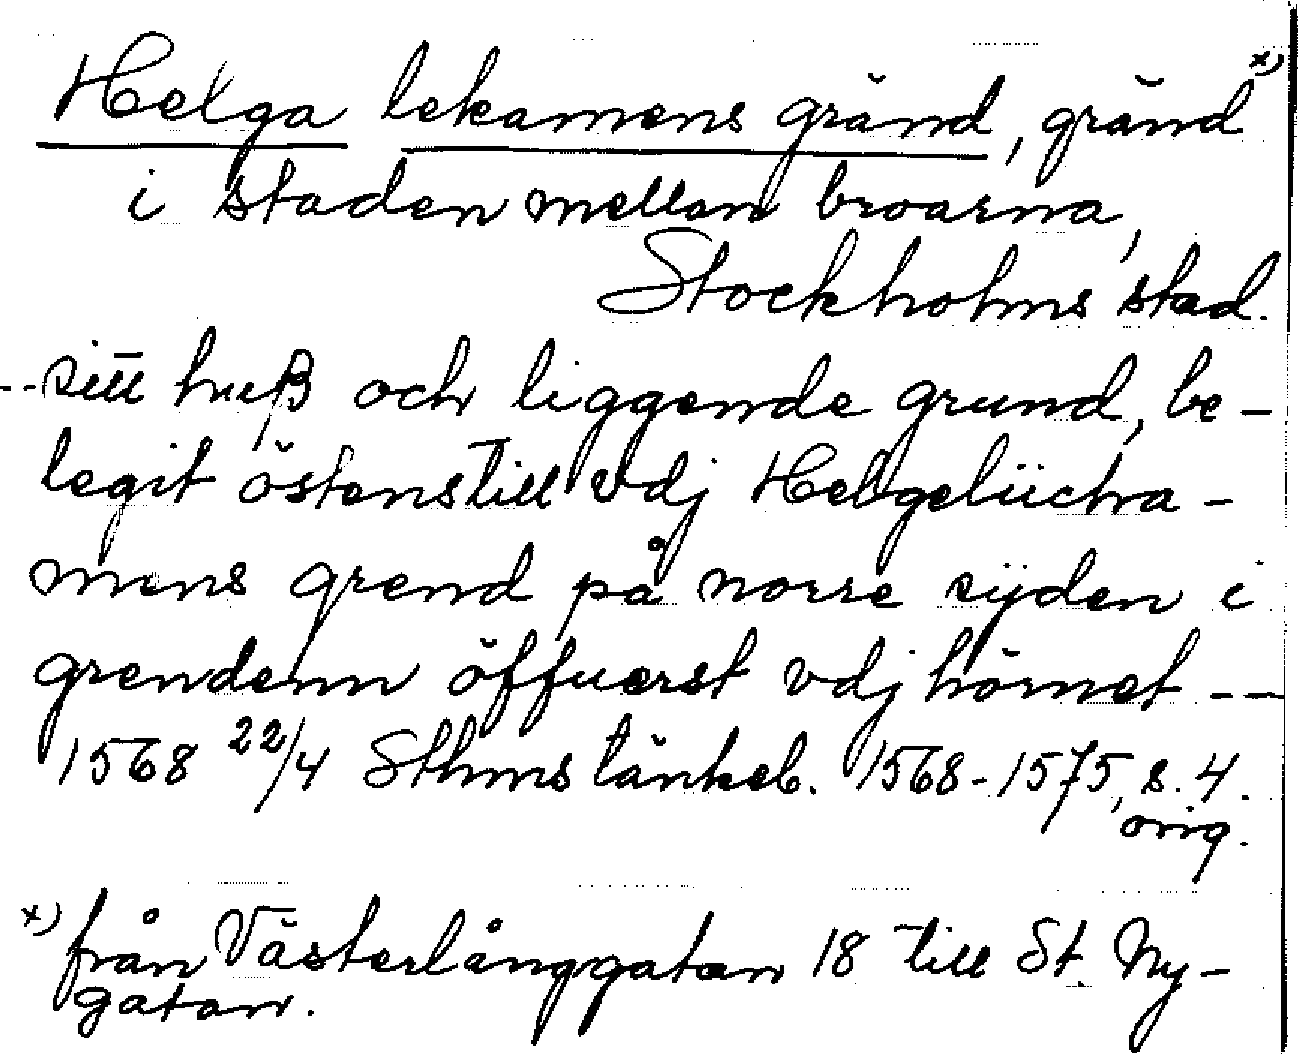 Helga lekamens gränd, gränd x)
i staden mellan broarna,
Stockholms stad.
--sitt huß och liggende grund, be-
legit östenstill vdj Helgelücha-
mens grend på norre sÿden i
grendenn öffuerst vdj hörnet --
1568 22/4 Sthms tänkeb. 1568-1575, s. 4.
orig.
x) från Västerlånggatan 18 till St. Ny-
gatan.